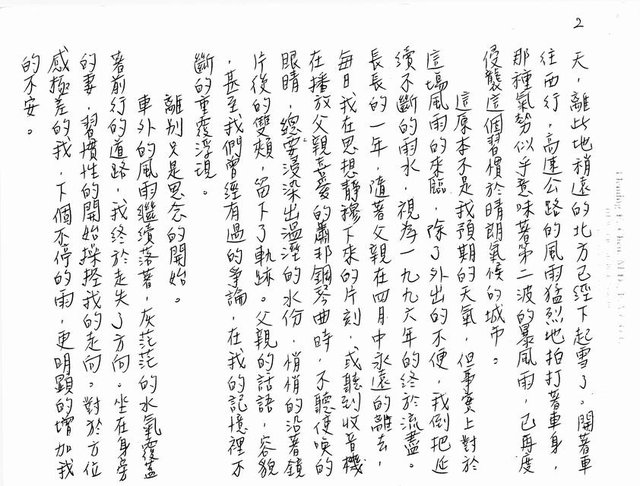 2
天，離此地稍遠的北方已經下起雪了。開著車
往西行，高速公路的風雨猛烈地拍打著車身，
那種氣勢似乎意味著第二波的暴風雨，已再度
侵襲這個習慣於晴朗氣候的城市。
這原本不是我預期的天氣，但事實上對於
這場風雨的來臨，除了外出的不便，我倒把近
續不斷的雨水，視為一九九六年的終於流盡。
長長的一年，隨著父親在四月中永遠的離去，
每日我在思想靜攏下來的片刻，或聽到收音機
在播放父親喜愛的蕭邦鋼琴曲時，不聽使喚的
眼睛，總要浸染出溫溼的水份，悄悄的沿著鏡
片後的雙頰，留下了軌跡。父親的話語，容貌
，甚至我們曾經有過的爭論，在我的記憶裡不
斷的重覆浮現。
離別只是思念的開始。
車外的風雨繼續落著，灰茫茫的水氣覆蓋
著前行的道路，我終於走失了方向。坐在身旁
的妻，習慣性的開始操控我的走向。對於方位
感極差的我，下個不停的雨，更明顯的增加我
的不安。